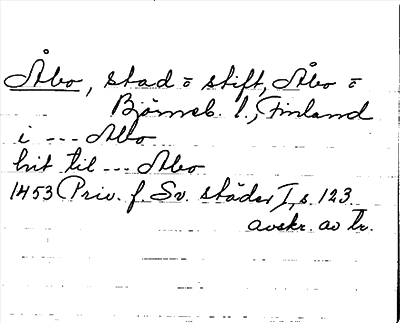 Åbo, stad = stift, Åbo =
Björneb. l., Finland
i --- Abo
hit til --- Abo
1453 Priv. f. Sv. städer I, s. 123.
avskr. av tr.